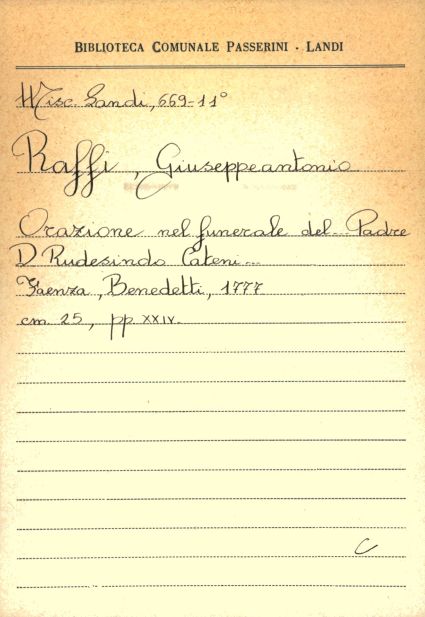 BIBLIOTECA COMUNALE PASSERINI - LANDI
Misc. Landi, 669-11°
Raffi, Giuseppeantonio
Orazione nel funerale del... Padre
D Rudesindo Cateni...
Faenza, Benedetti, 1777
cm. 25, pp. XXIV.
C